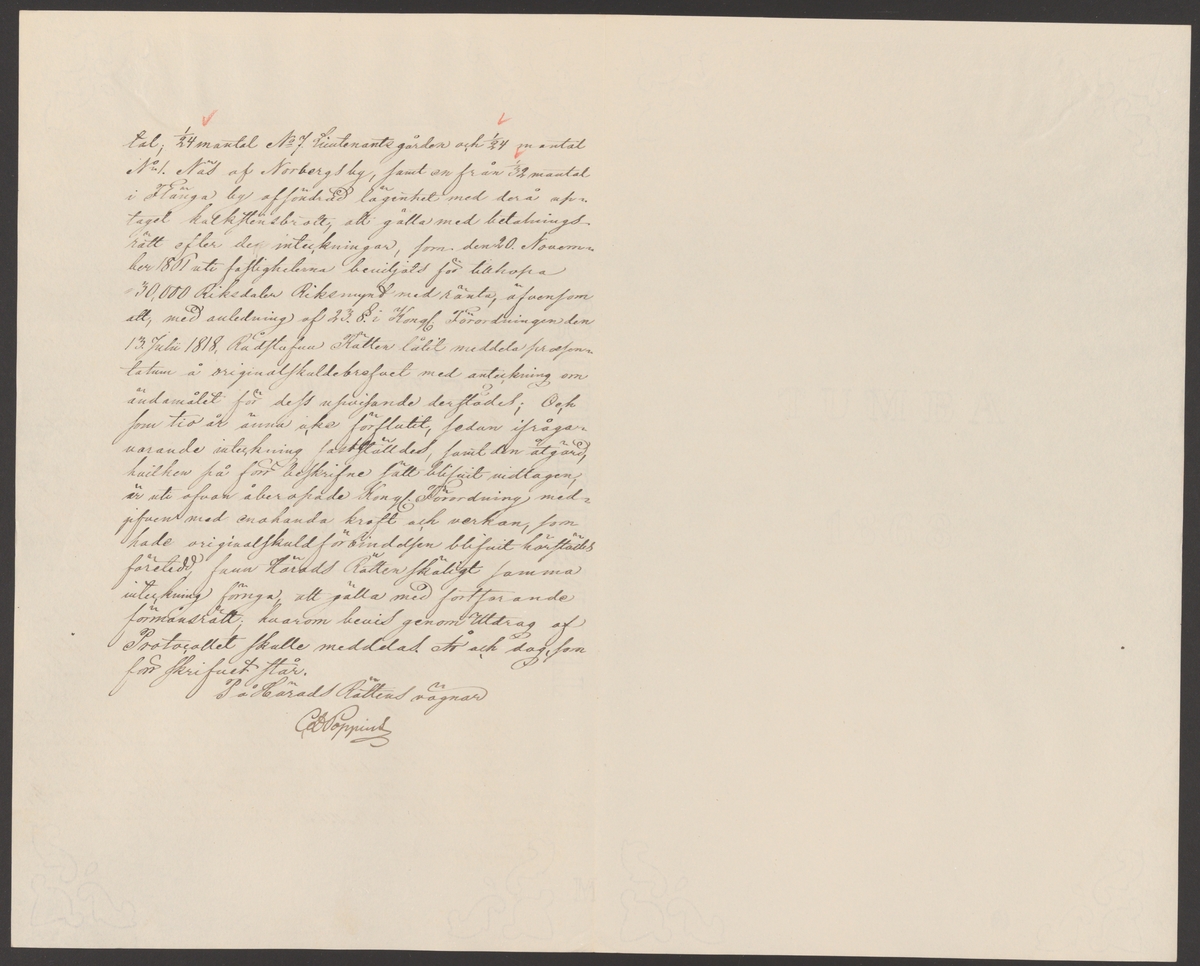 tal; 1/24 mantal No 7. Lieutenantsgården och 1/24 mantal
No 1. Näs af Norbergsby, samt en från 1/32 mantal
i Klånga by afsöndrad lägenhet med derå up=
taget kalkstensbrott, att gälla med betalnings=
rätt efter de inteckningar, som den 20. Novem=
ber 1861 uti fastigheterna beviljats för tillhopa
30,000 Riksdaler Riksmynt med ränta, äfvensom
att, med anledning af 23. §. i Kongl. Förordningen den
13. Julii 1818. Rådstufvu Rätten låtit meddela præsen=
tatum å originalskuldebrefvet med anteckning om
ändamålet för dess upvisande derstädes; Och
som tio år ännu icke förflutit, sedan ifråga=
varande inteckning fastställdes, samt den åtgärd,
hvilken på förr beskrifne sätt blifvit vidtagen,
är uti ofvan åberopade Kongl. Förordning med=
gifven med enahanda kraft och verkan, som
hade originalskuldförbindelsen blifvit härstädes
företedd, fann Härads Rätten skäligt samma
inteckning förnya, att gälla med fortfarande
förmånsrätt; hvarom bevis genom Utdrag af
Protocollet skulle meddelas År och dag, som
förr skrifvet står.
På Härads Rättens vägnar
Poppius